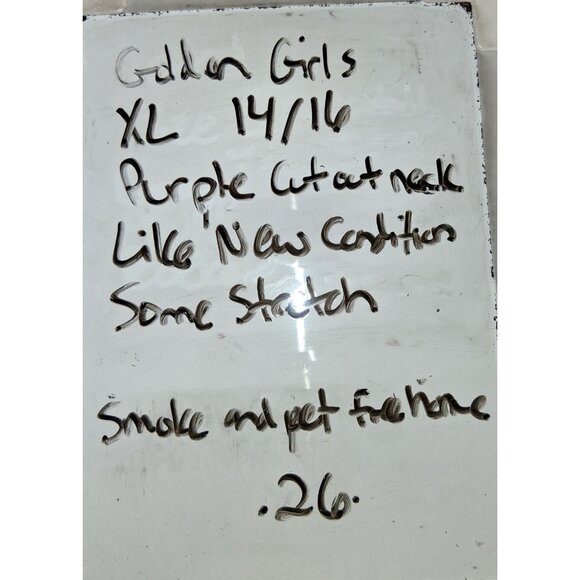 Golden Girls
XL 14/16
Purple Cut out neck
Like New Condition
Some Stretch
Smoke and pet free home
.26.